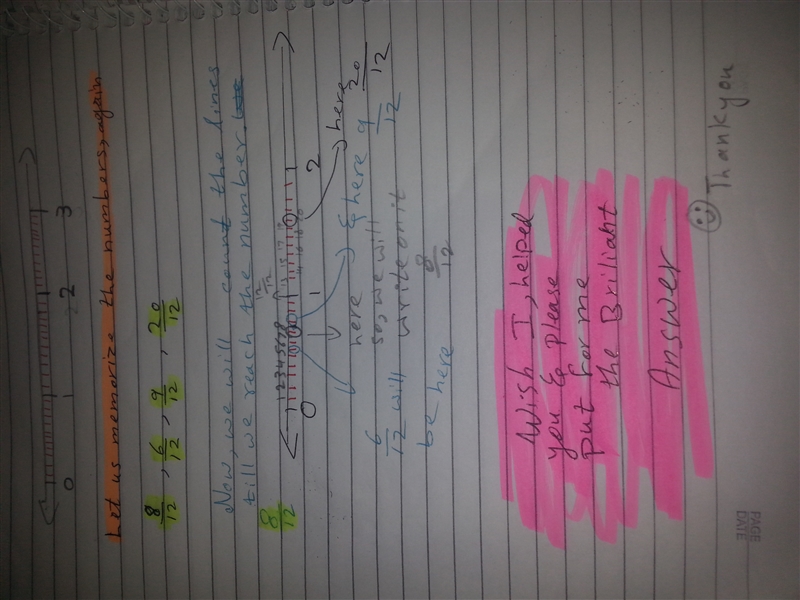 0 1 2 3
Let us memorize the numbers, again
8/12, 6/12, 9/12, 20/12
Now, we will count the lines
till we reach the number.
8/12
12/12
1 2 3 4 5 6 7 8
0 1 2
here & here here 20/12
9/12
6/12 will so, we will
write on it
be here 8/12
Wish I, helped
you & Please
put for me
the Briliant
Answer
Thank you
PAGE
DATE